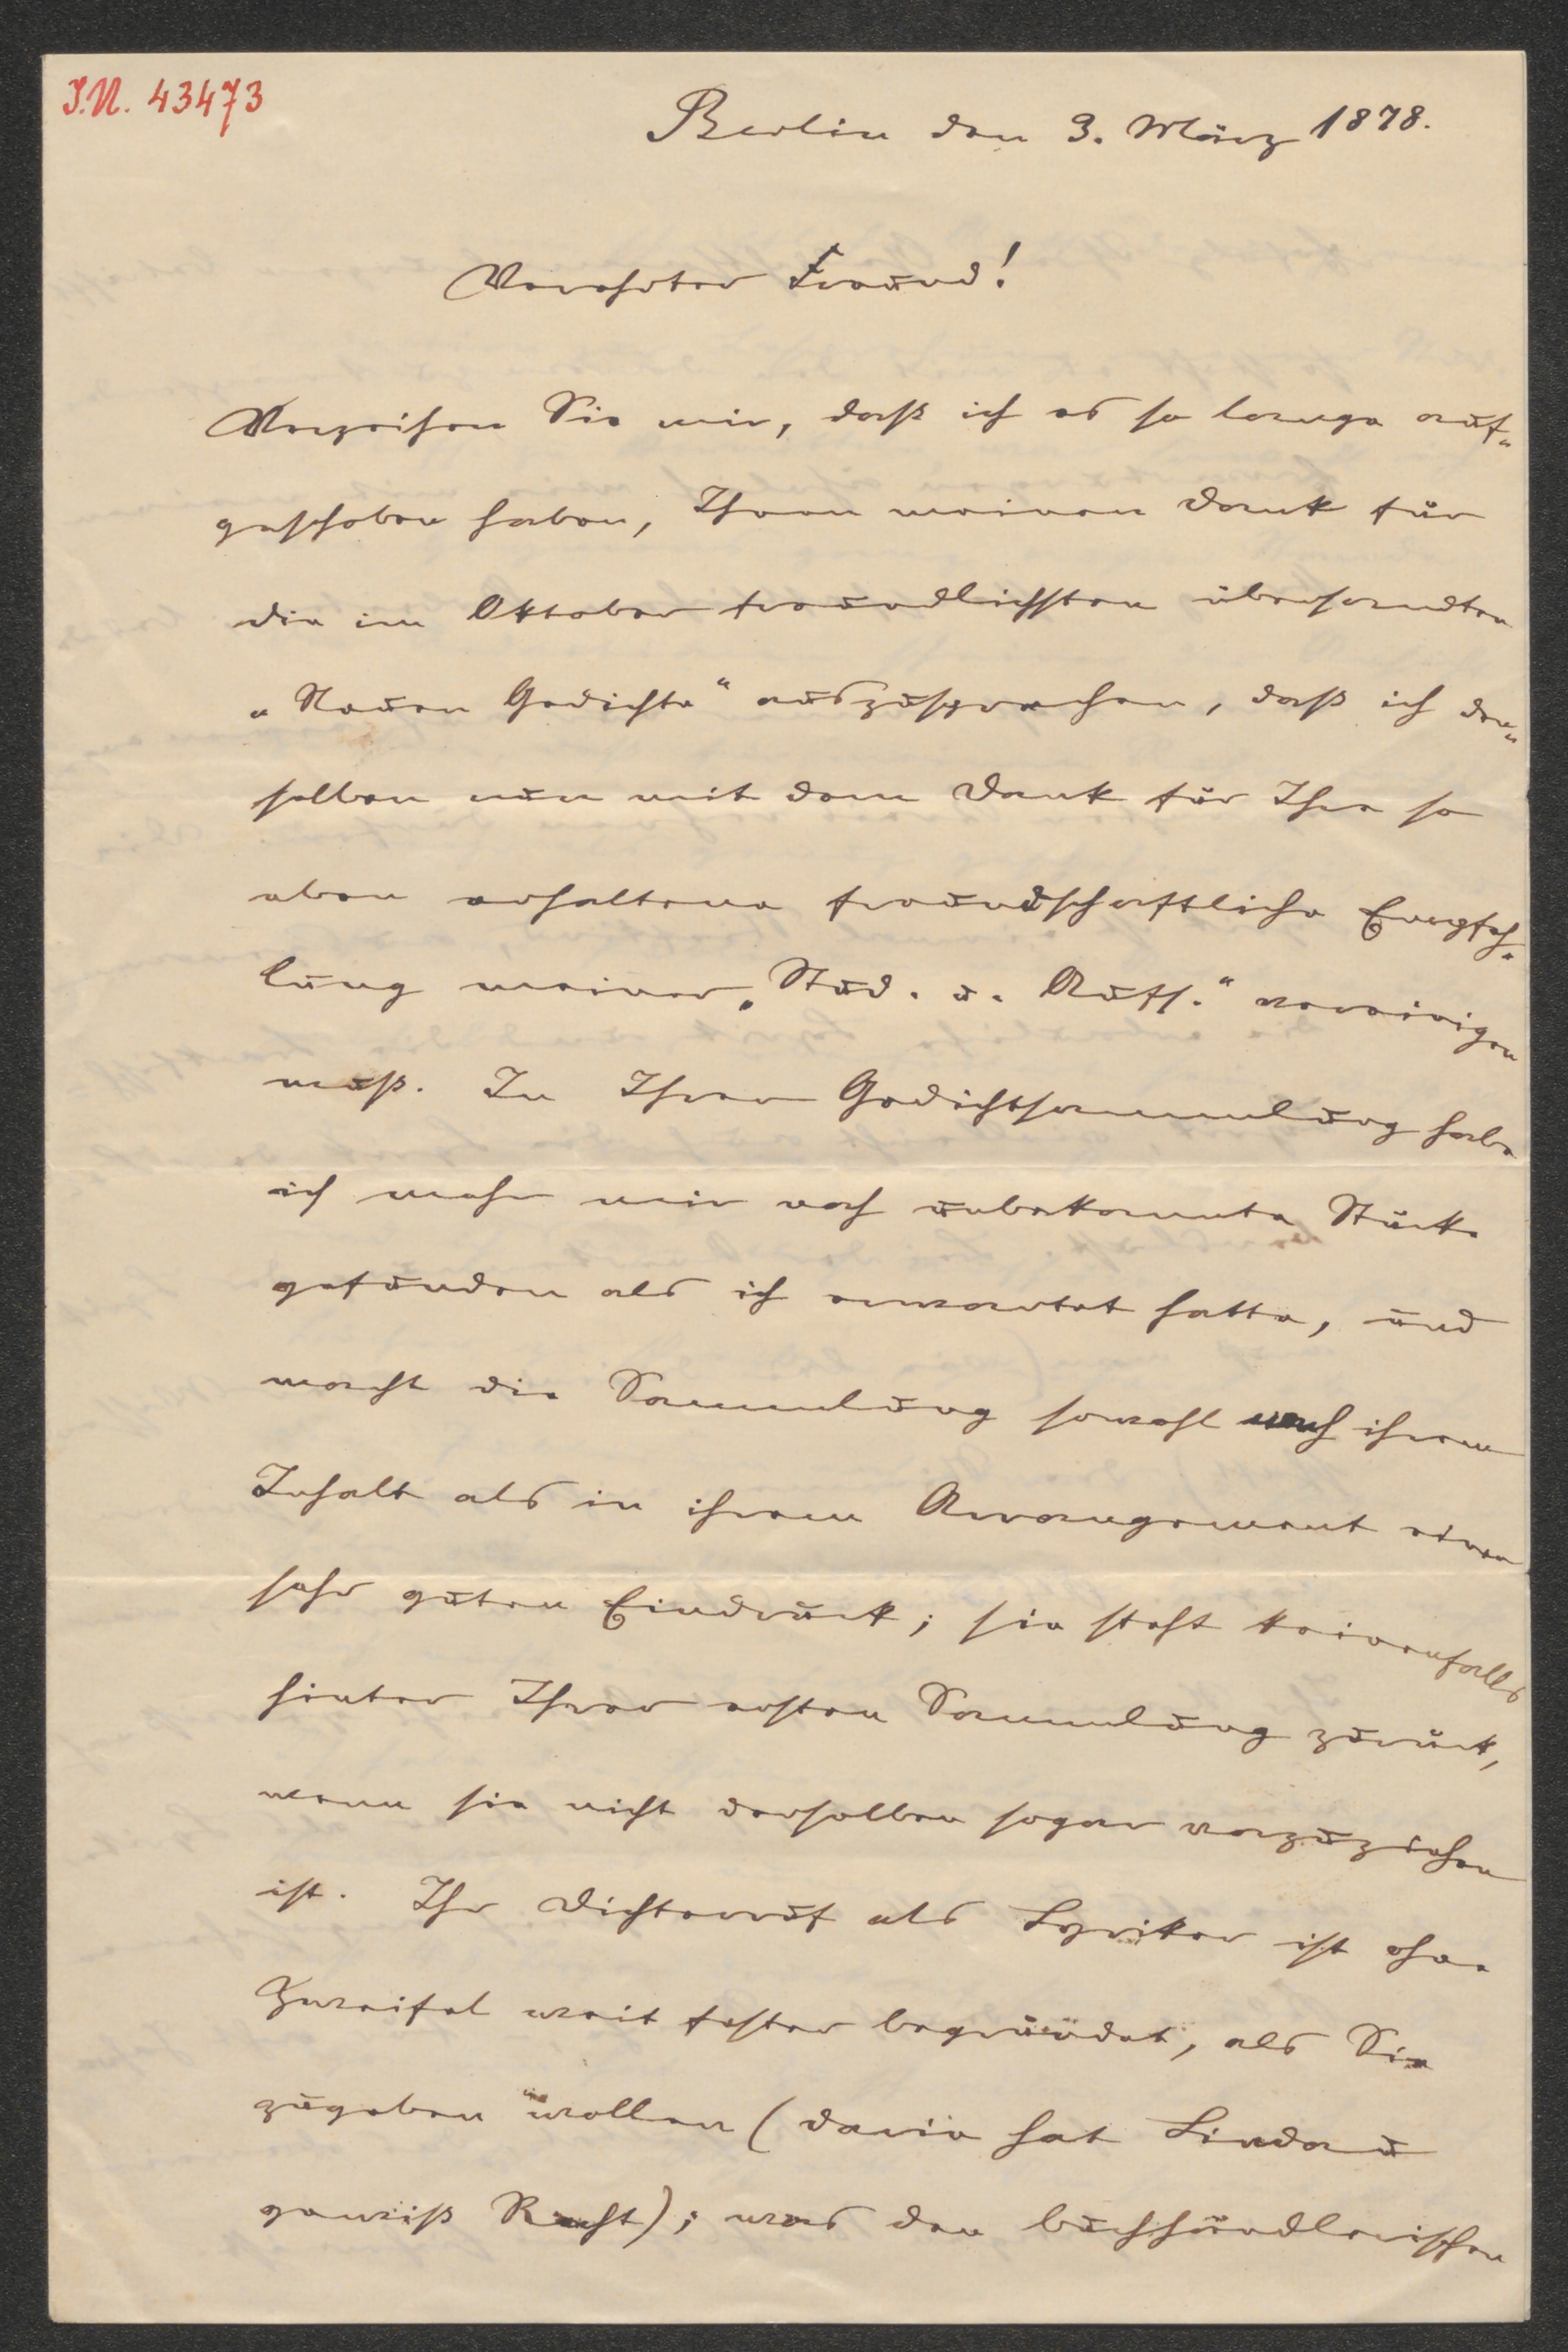 I.N. 43473
Berlin den 3. März 1878.
Verehrter Freund!
Verzeihen Sie mir, daß ich es so lange auf-
geschoben habe, Ihnen meinen Dank für
die im Oktober freundlichsten übersandten
„Neuen Gedichte“ auszusprechen, daß ich den-
selben nun mit dem Dank für Ihre so
eben erhaltene freundschaftliche Empfeh-
lung meiner „Stud. u. Aufs.“ vereinigen
muß. In Ihrer Gedichtsammlung habe
ich mehr mir noch unbekannte Stücke
gefunden als ich erwartet hatte, und
macht die Sammlung sowohl nach ihrem
Inhalt als in ihrem Arrangement einen
sehr guten Eindruck; sie steht keinenfalls
hinter Ihrer ersten Sammlung zurück,
wenn sie nicht derselben sogar vorzuziehen
ist. Ihr Dichterruf als Lyriker ist ohne
Zweifel weit fester begründet, als Sie
zugeben wollen (darin hat Lindau
gewiß Recht); was den buchhändlerischen